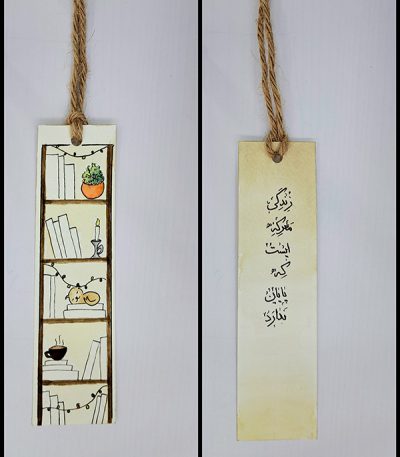 زندگی
معرکه
ایست
که
پایان
ندارد